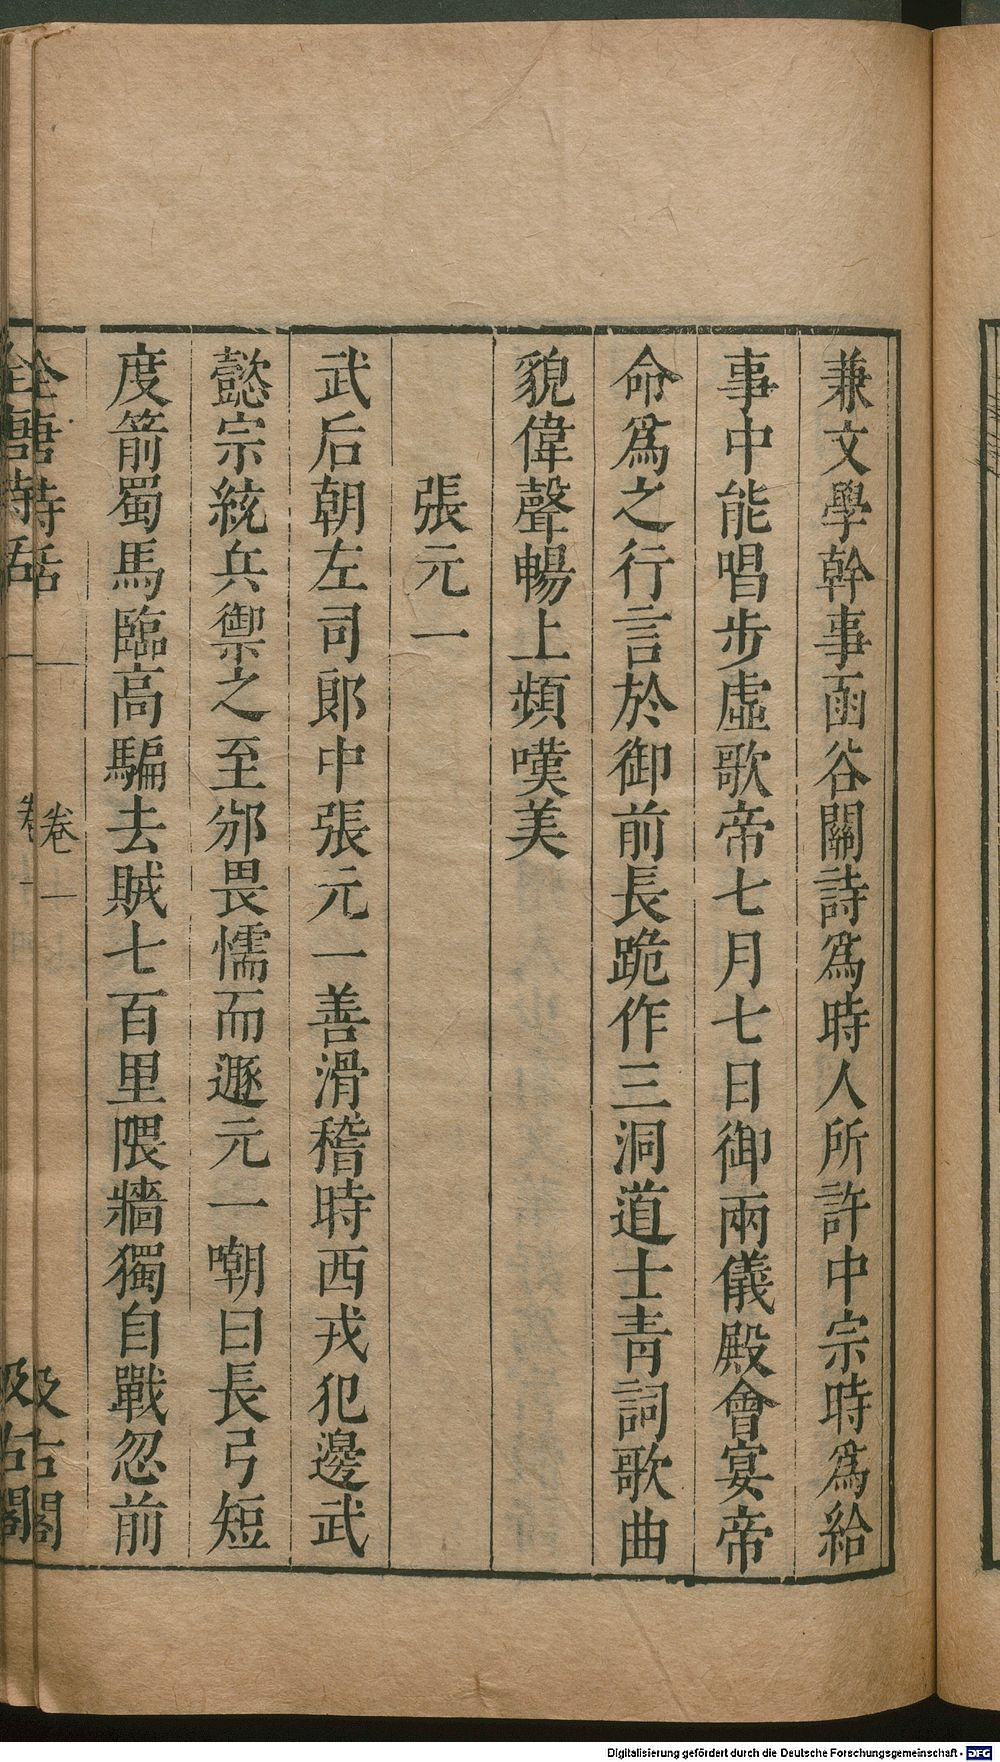 兼文學幹事函谷關詩爲時人所許中宗時爲給
事中能唱步虛歌帝七月七日御兩儀殿會宴帝
命爲之行言於御前長跪作三洞道士青詞歌曲
貌偉聲暢上頻嘆美
張元一
武后朝左司郎中張元一善滑稽時西戎犯邊武
懿宗統兵禦之至邠畏懦而遯元一嘲曰長弓短
度箭蜀馬臨高騙去賊七百里隈牆獨自戰忽前
全唐詩話 卷一 汲古閣
全唐詩話 卷一 汲古閣
Digitalisierung gefördert durch die Deutsche Forschungsgemeinschaft - DFG